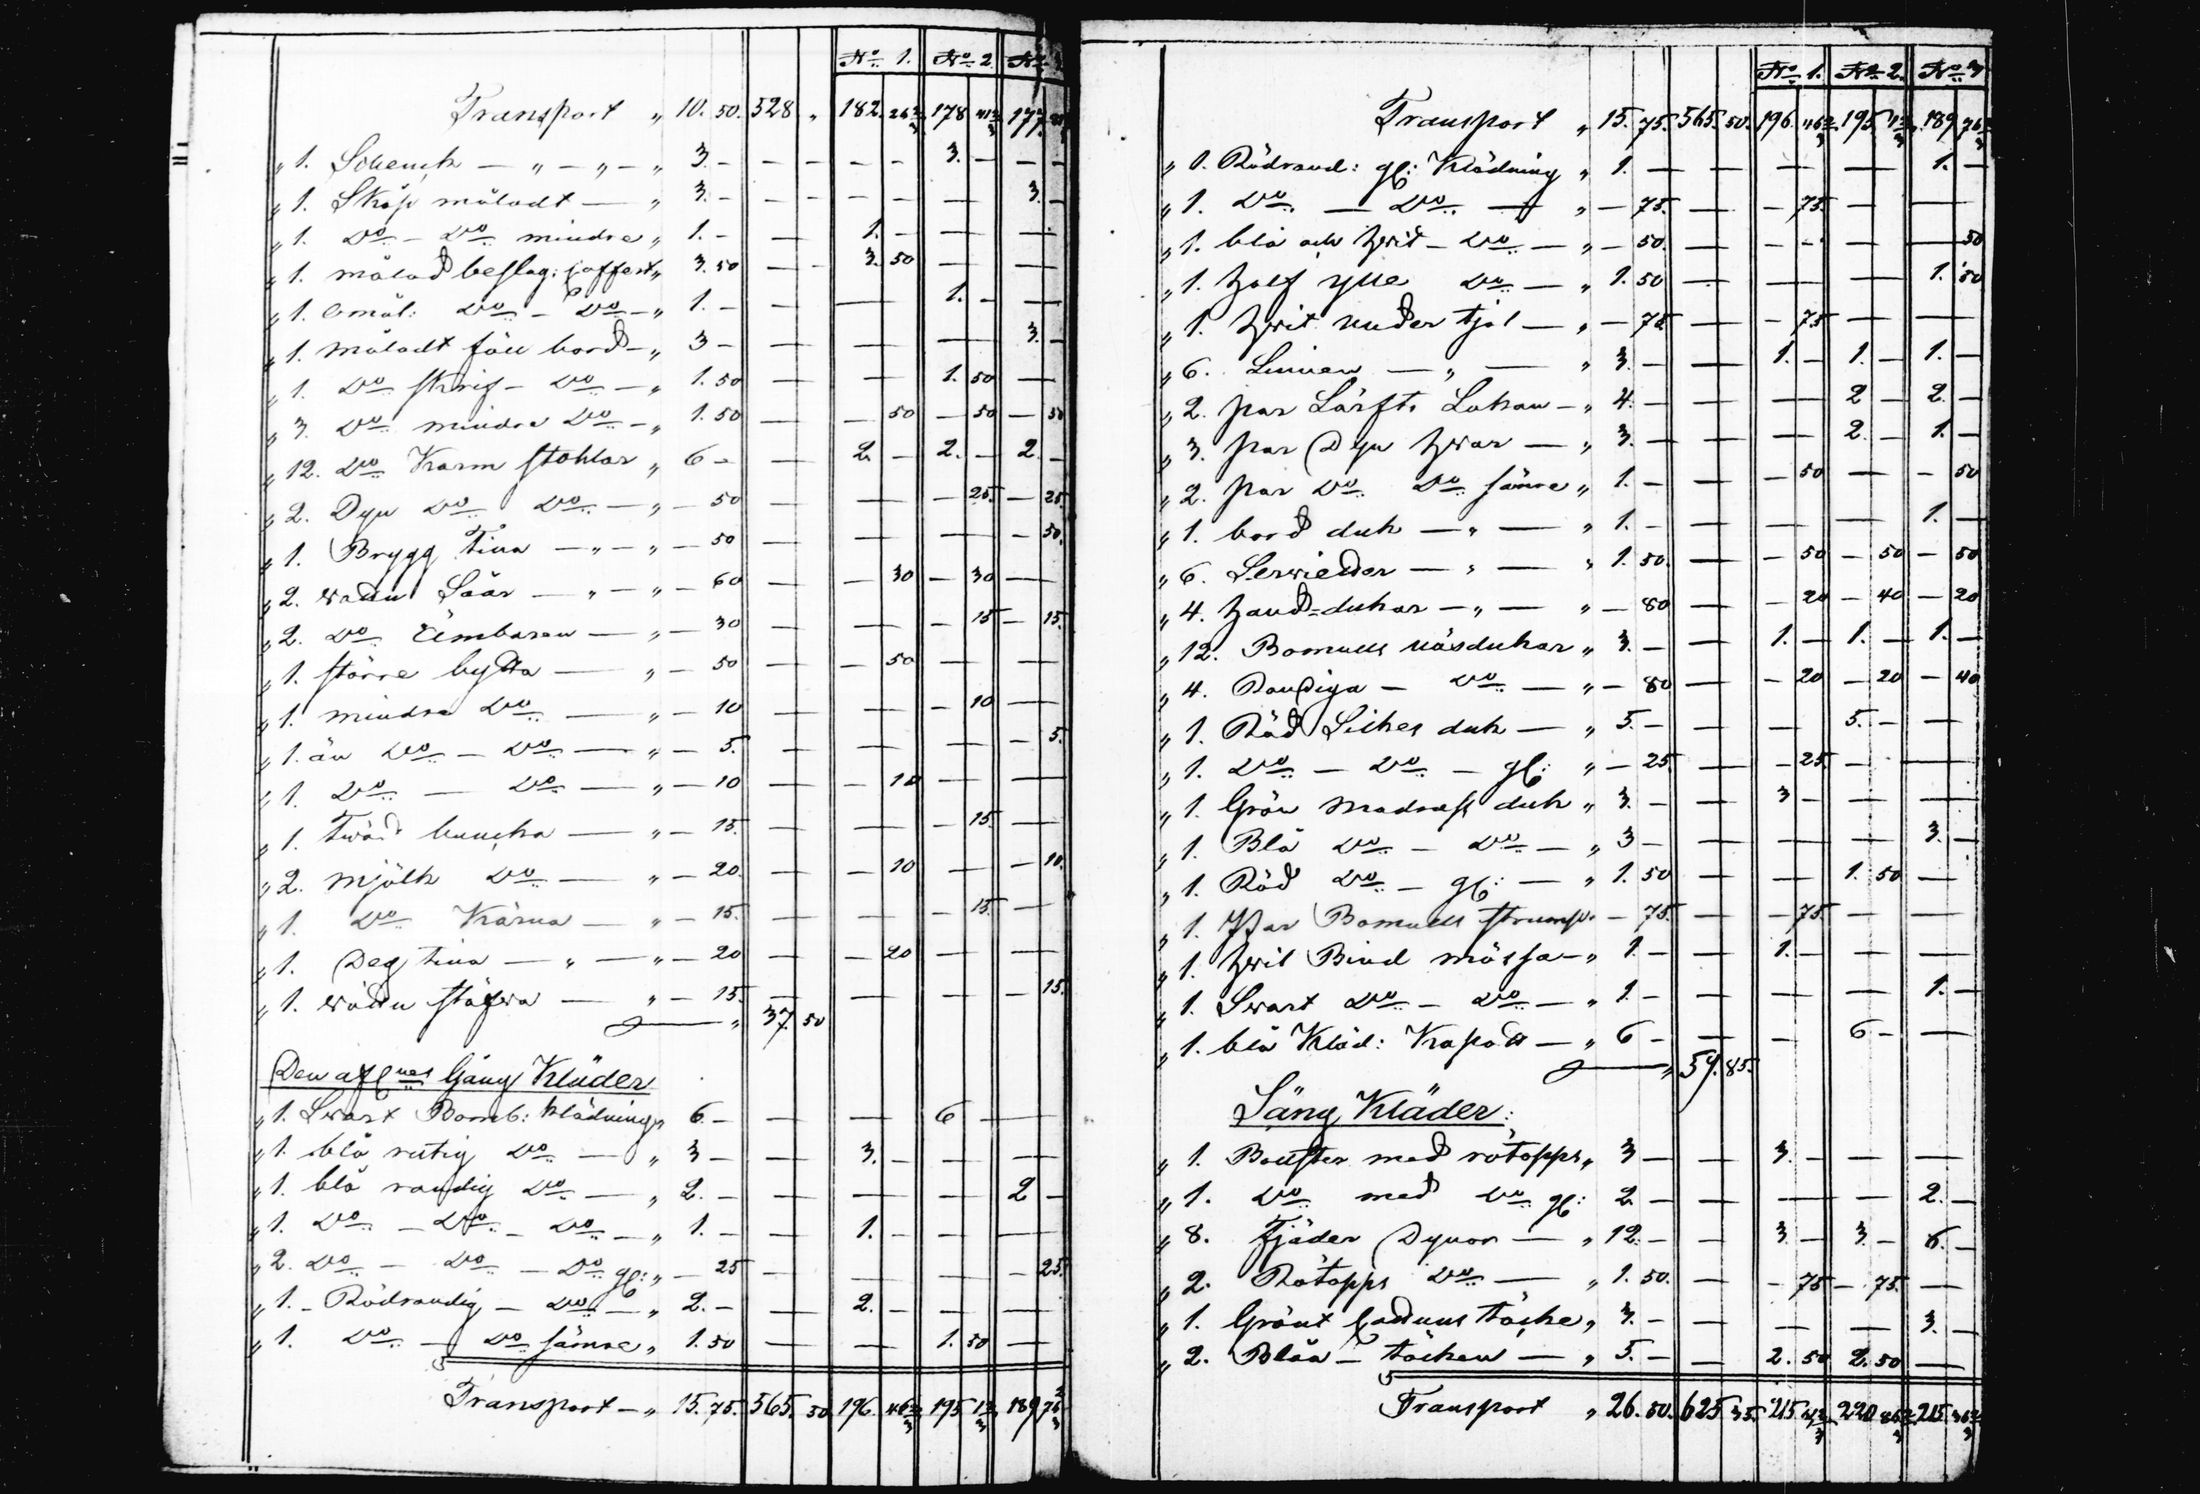 No 1. No 2 No 3
Transport " 10. 50. 528 " 182. 26 2/3 178 41 2/3 177.
" 1. Schenck — " — " — " 3. — 3. —
" 1. Skåp måladt — " 3. — 3. —
" 1. Do — Do mindre " 1. — 1. —
" 1. målad beslag: coffert " 3. 50 — 3. 50
" 1. omål: Do — Do — " 1. — 1. —
" 1. måladt fäll bord — " 3 — 3. —
" 1. Do skrif — Do — " 1. 50 — 1. 50
" 3. Do mindre Do — " 1. 50 — 50 — 50 — 50
" 12. Do Karm stohlar " 6 — 2. — 2. — 2 —
" 2. Dyn Do Do — " — 50 — 25. — 25
" 1. Brygg Tina — " — " — 50 — 50.
" 2. wattu Såår — " — " — 60 — 30 — 30
" 2. Do Ämbaren — " — 30 — 15 — 15.
" 1. större bytta — " — 50 — 50
" 1. mindre Do — " — 10 — 10
" 1. än Do — Do — " — 5. — 5.
" 1. Do — Do — " — 10 — 10
" 1. Twåd buncka — " — 15. — 15.
" 2. Mjölk Do — " — 20. — 10 — 10.
" 1. Do Kärna — " — 15. — 15.
" 1. Deg tina — " — " — 20 — 20
" 1. wattu stäfwa — " — 15. — 15.
" 37. 50
Den afl:nes Gång Kläder
" 1. Swart Bomb: klädning " 6. — 6 —
" 1. blå rutig Do — " 3 — 3. —
" 1. blå randig Do — " 2. — 2 —
" 1. Do — Do — Do — " 1. — 1. —
" 2. Do — Do — Do gl: " — 25 — 25.
" 1. — Rödrandig — Do — " 2. — 2. —
" 1. Do — Do sämre " 1. 50 — 1. 50
Transport — " 15. 75. 565. 50 196. 46 2/3 195 1 2/3 189 76 2/3
No 1. No 2. No 3
Transport " 15. 75. 565. 50. 196. 46 2/3 195. 1 2/3 189 76 2/3
" 1. Rödrand: gl: Klädning " 1. — 1. —
" 1. Do — Do — " — 75. — 75.
" 1. blå och hvit — Do — " — 50. — 50
" 1. half ylle Do — " 1. 50 — 1. 50
" 1. hvit under kjol — " — 75 — 75
" 6. Linnen — " — " 3. — 1. — 1. — 1. —
" 2. par Lärfts Lakan — " 4. — 2 — 2. —
" 3. par Dyn hwar — " 3. — 2. — 1. —
" 2. par Do Do sämre " 1. — 50 — 50
" 1. bord duk — " — " 1. — 1. —
" 6. Servietter — " — " 1. 50. — 50 — 50 — 50
" 4. hand-dukar — " — " — 80 — 20 — 40 — 20
" 12. Bomulls näsdukar " 3. — 1. — 1. — 1. —
" 4. Randiga — Do — " — 80 — 20 — 20 — 40
" 1. Röd Silkes duk — " 5. — 5. —
" 1. Do — Do — gl: " — 25. — 25.
" 1. Grön Madrass duk " 3. — 3 —
" 1. Blå Do — Do — " 3 — 3. —
" 1. Röd Do — gl: — " 1. 50 — 1. 50
" 1. Par Bomulls strump. — 75. — 75.
" 1. hvit Bind mössa — " 1. — 1. —
" 1. Swart Do — Do — " 1. — 1. —
" 1. blå Kläd: Kapott — " 6 — 6 —
" 59. 85.
Säng Kläder:
" 1. Bolster med rötopps " 3 — 3. —
" 1. Do med Do gl: 2. — 2. —
" 8. Fjäder Dynor — " 12. — 3. — 3. — 6. —
" 2. Rötopps Do — " 1. 50. — 75 — 75.
" 1. Grönt Cattuns täcke " 3. — 3. —
" 2. Blåa — täcken — " 5. — 2. 50 2. 50
Transport " 26. 50. 625. 35. 215 41 2/3 220 86 2/3 215. 36 2/3